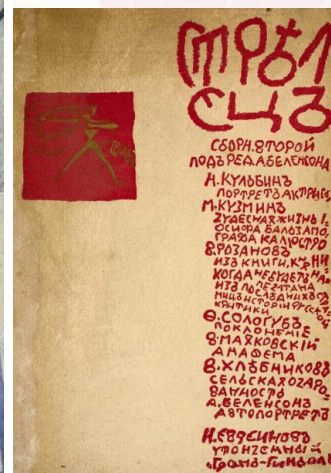 СТРѢЛ
ЕЦЪ
СБОРН. ВТОРОЙ
ПОДЪ РЕД. А БЕЛЕНСОНА
Н. КУЛЬБИНЪ
ПОРТРЕТЪ АКТРИСЫ
М. КУЗМИНЪ
ЧУДЕСНАЯ ЖИЗНЬ I.
ОСИФА БАЛЬЗАМО,
ГРАФА КАЛIОСТРО
В. РОЗАНОВЪ
ИЗЪ КНИГИ, К. НИ
КОГДА НЕ БУДЕТЪ НА
ПЕЧАТАНА
ИЗЪ ПОСЛѢДНИХЪ СТР
НИЦЪ ИСТОРIИ РУССКОЙ
КРИТИКИ
Ѳ. СОЛОГУБЪ
ПОКЛОНЕНIЕ
В. МАЯКОВСКIЙ
АНАФЕМА
В. ХЛѢБНИКОВЪ
СЕЛЬСКАЯ ОЧАРО-
ВАННОСТЬ
А. БЕЛЕНСОНЪ
АВТОПОРТРЕТЪ
Н. ЕВРЕИНОВЪ
УТОНЧЕННЫЙ
„ГРАНЪ-ГИНЬОЛ